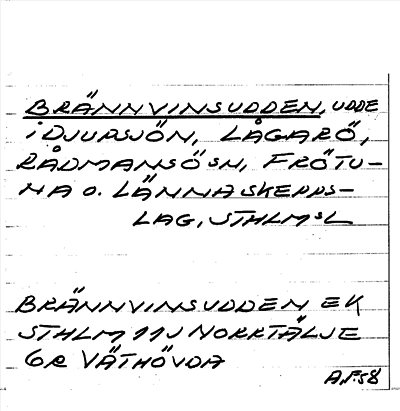 BRÄNNVINSUDDEN, UDDE
i DJUPSJÖN, LÅGARÖ,
RÅDMANSÖ SN, FRÖTU-
NA O. LÄNNA SKEPPS-
LAG, STHLMS L
BRÄNNVINSUDDEN EK
STHLM 11J NORRTÄLJE
6R VÄTHÖVDA
A.P. 58